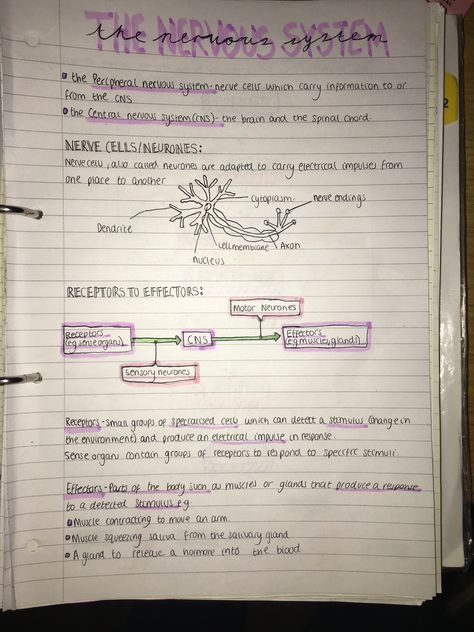 THE NERVOUS SYSTEM
the nervous system
the Peripheral nervous system - nerve cells which carry information to or
from the CNS
the Central nervous system (CNS) - the brain and the spinal chord.
2
NERVE CELLS/NEURONES:
Nerve cells, also called neurones are adapted to carry electrical impulses from
one place to another
cytoplasm
nerve endings
Dendrite
cell membrane
Axon
nucleus
RECEPTORS TO EFFECTORS:
Motor Neurones
Receptors
(eg sense organs)
CNS
Effectors
(eg muscles, glands)
sensory neurones
Receptors - small groups of specialised cells which can detect a stimulus (change in
the environment) and produce an electrical impulse in response.
Sense organs contain groups of receptors to respond to specific stimuli.
Effectors - Parts of the body such as muscles or glands that produce a response
to a detected stimulus eg.
Muscle contracting to move an arm.
Muscle squeezing saliva from the salivary gland
A gland to release a hormone into the blood